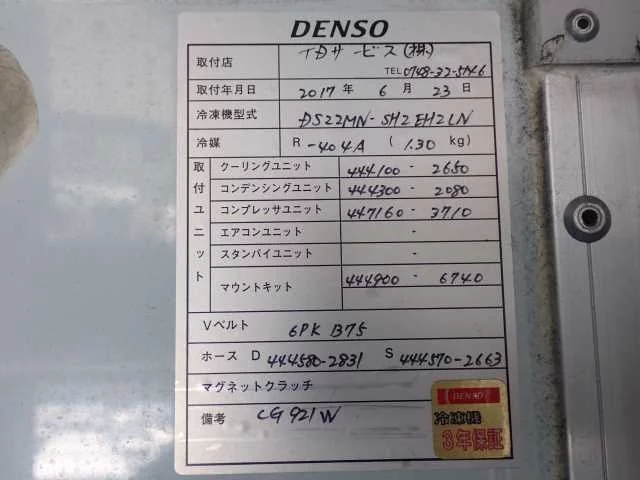 DENSO
取付店 TDサービス(株)
TEL 0748-32-5746
取付年月日 2017 年 6 月 23 日
冷凍機型式 DS22MN-SH2EH2LN
冷媒 R -404A ( 1.30 kg)
取付ユニット
クーリングユニット 444100 - 2650
コンデンシングユニット 444300 - 2080
コンプレッサユニット 447160 - 3710
エアコンユニット -
スタンバイユニット -
マウントキット 444900 - 6740
Vベルト 6PK 1375
ホース D 444580-2831 S 444570-2663
マグネットクラッチ
備考 CG921W
DENSO
冷凍機
3年保証